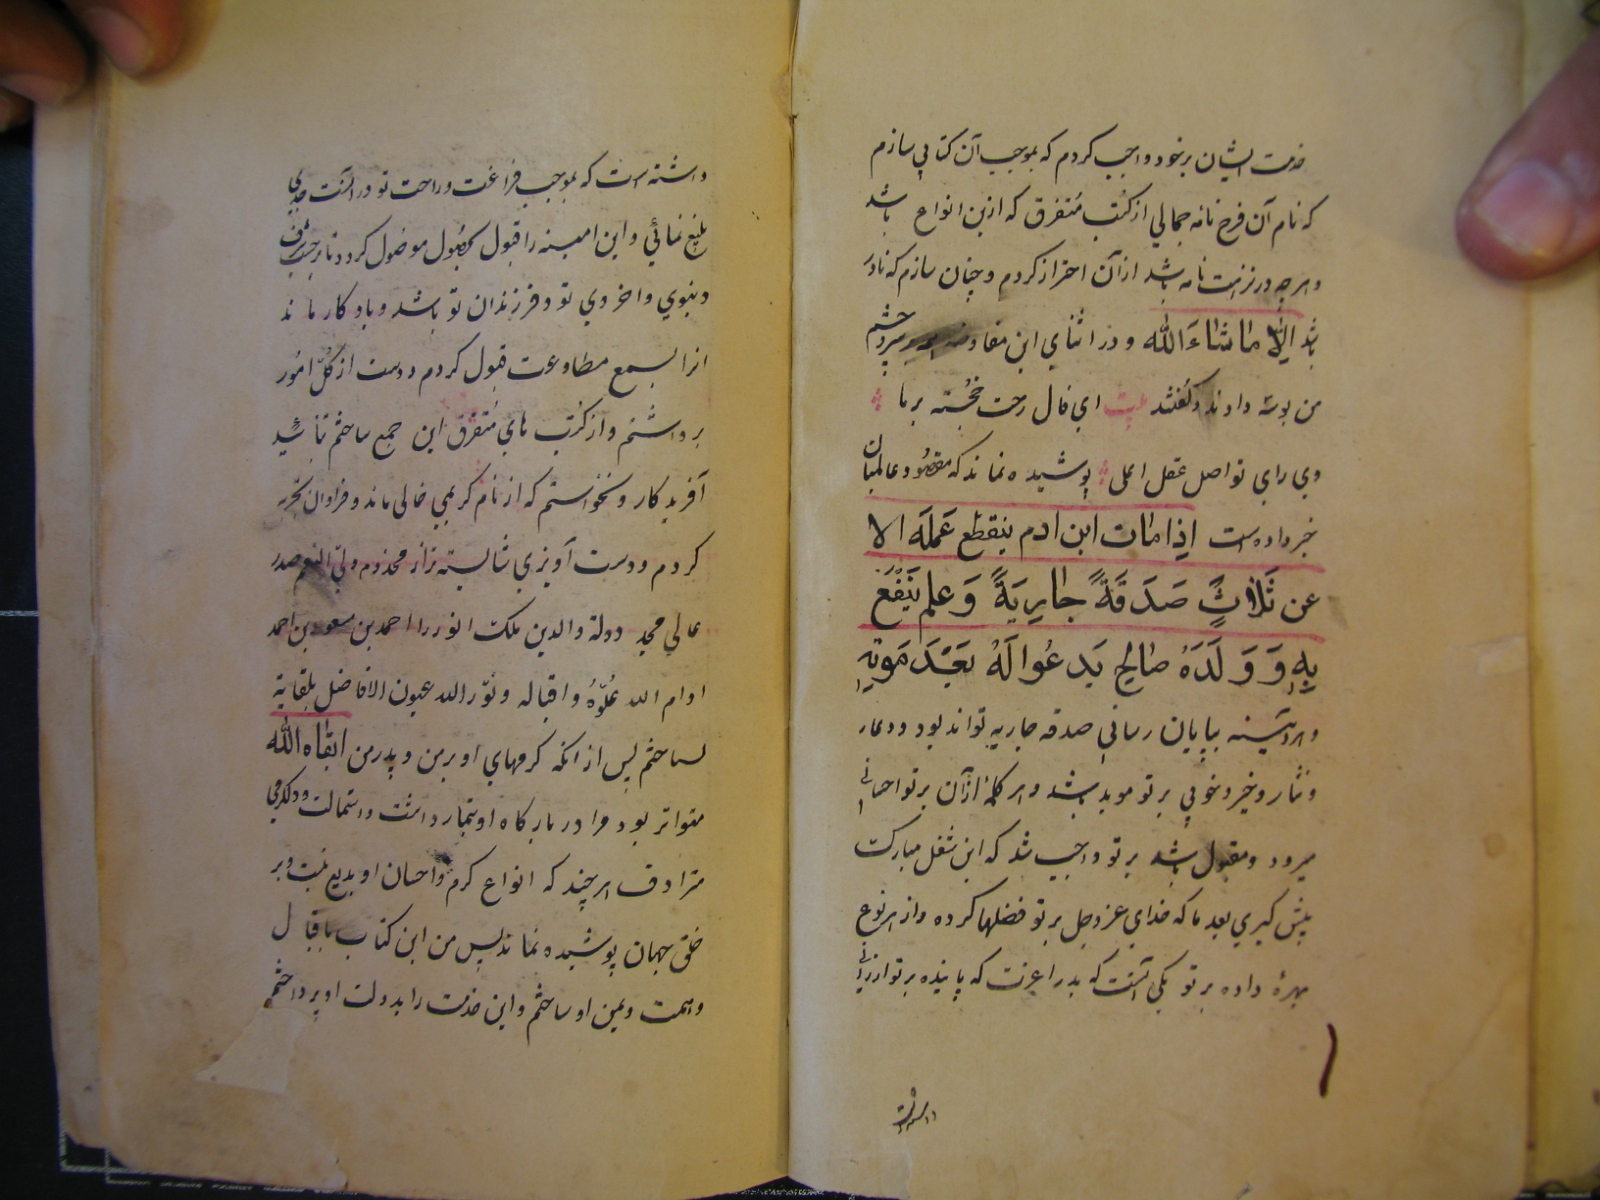 خدمت ایشان برخود واجب کردم که بموجب آن کتابی سازم
که نام آن فرح نامه جمالی از کتب متفرق که ازین انواع باشد
وهرچه در نزهت نامه باشد ازآن احتراز کردم وچنان سازم که نادر
باشد الا ماشاءالله ودر اثنای این مفاوضه سر وچشم
من بوسه دادند وگفتند بیت ای فال رخت خجسته برما
وی رای تو اصل عقل اعلی پوشیده نماند که مقصود عالمیان
خبر داده است اذا مات ابن ادم ینقطع عمله الا
عن ثلاثٍ صَدَقَةً جاریَةً وَعلم یَنفَع
بِهِ وَ وَلَدَهُ صالح یَدعُوا لَهُ بَعْدَ مَوتِهِ
وهر آینه بپایان رسانی صدقه جاریه تواند بود ودعا
وثنا وخیر وخوبی برتو موبد باشد وهر کلمه ازآن برتو احیا
میرود ومقبول باشد برتو واجب شد که این شغل مبارکت
پیش گیری بعد ما که خدای عزوجل برتو فضلها کرده واز هر نوع
بهرهٔ داده برتو یکی آنست که پاینده برتو ارزانی
داشته است
داشته است که بموجب فراغت وراحت تو در آنست جدی
بلیغ نمائی واین امنیه را قبول موصول کرد
دنیوی واخروی تو وفرزندان تو باشد ویادکار ماند
انرا بسمع مطاوعت قبول کردم ودست از کل امور
برداشتم واز کتب های متفرق این جمع ساختم تا باشد
آفریدکار ونخواستم که از نام کریمی خالی ماند وفراوان تجربه
کردم ودست آویزی شایسته تر از مخدوم ولی النعم صدر
عالی مجد دولة والدین ملک الوزرا احمد بن مسعود بن احمد
ادام الله عُلوّهُ واقباله ونوّر الله عیون الافاضل بلقایه
ساختم پس از انکه کرمهای او برمن وپدرمن ابقاه الله
متواتر بود ومرا در بارکاه او تیمار داشت واستمالت ودلکرمی
مترادف هرچند که انواع کرم واحسان او بدیع نیست وبر
خلق جهان پوشیده نماند پس من این کتاب باقبال
وهمت ویمن او ساختم واین خدمت را بدولت او پرداختم